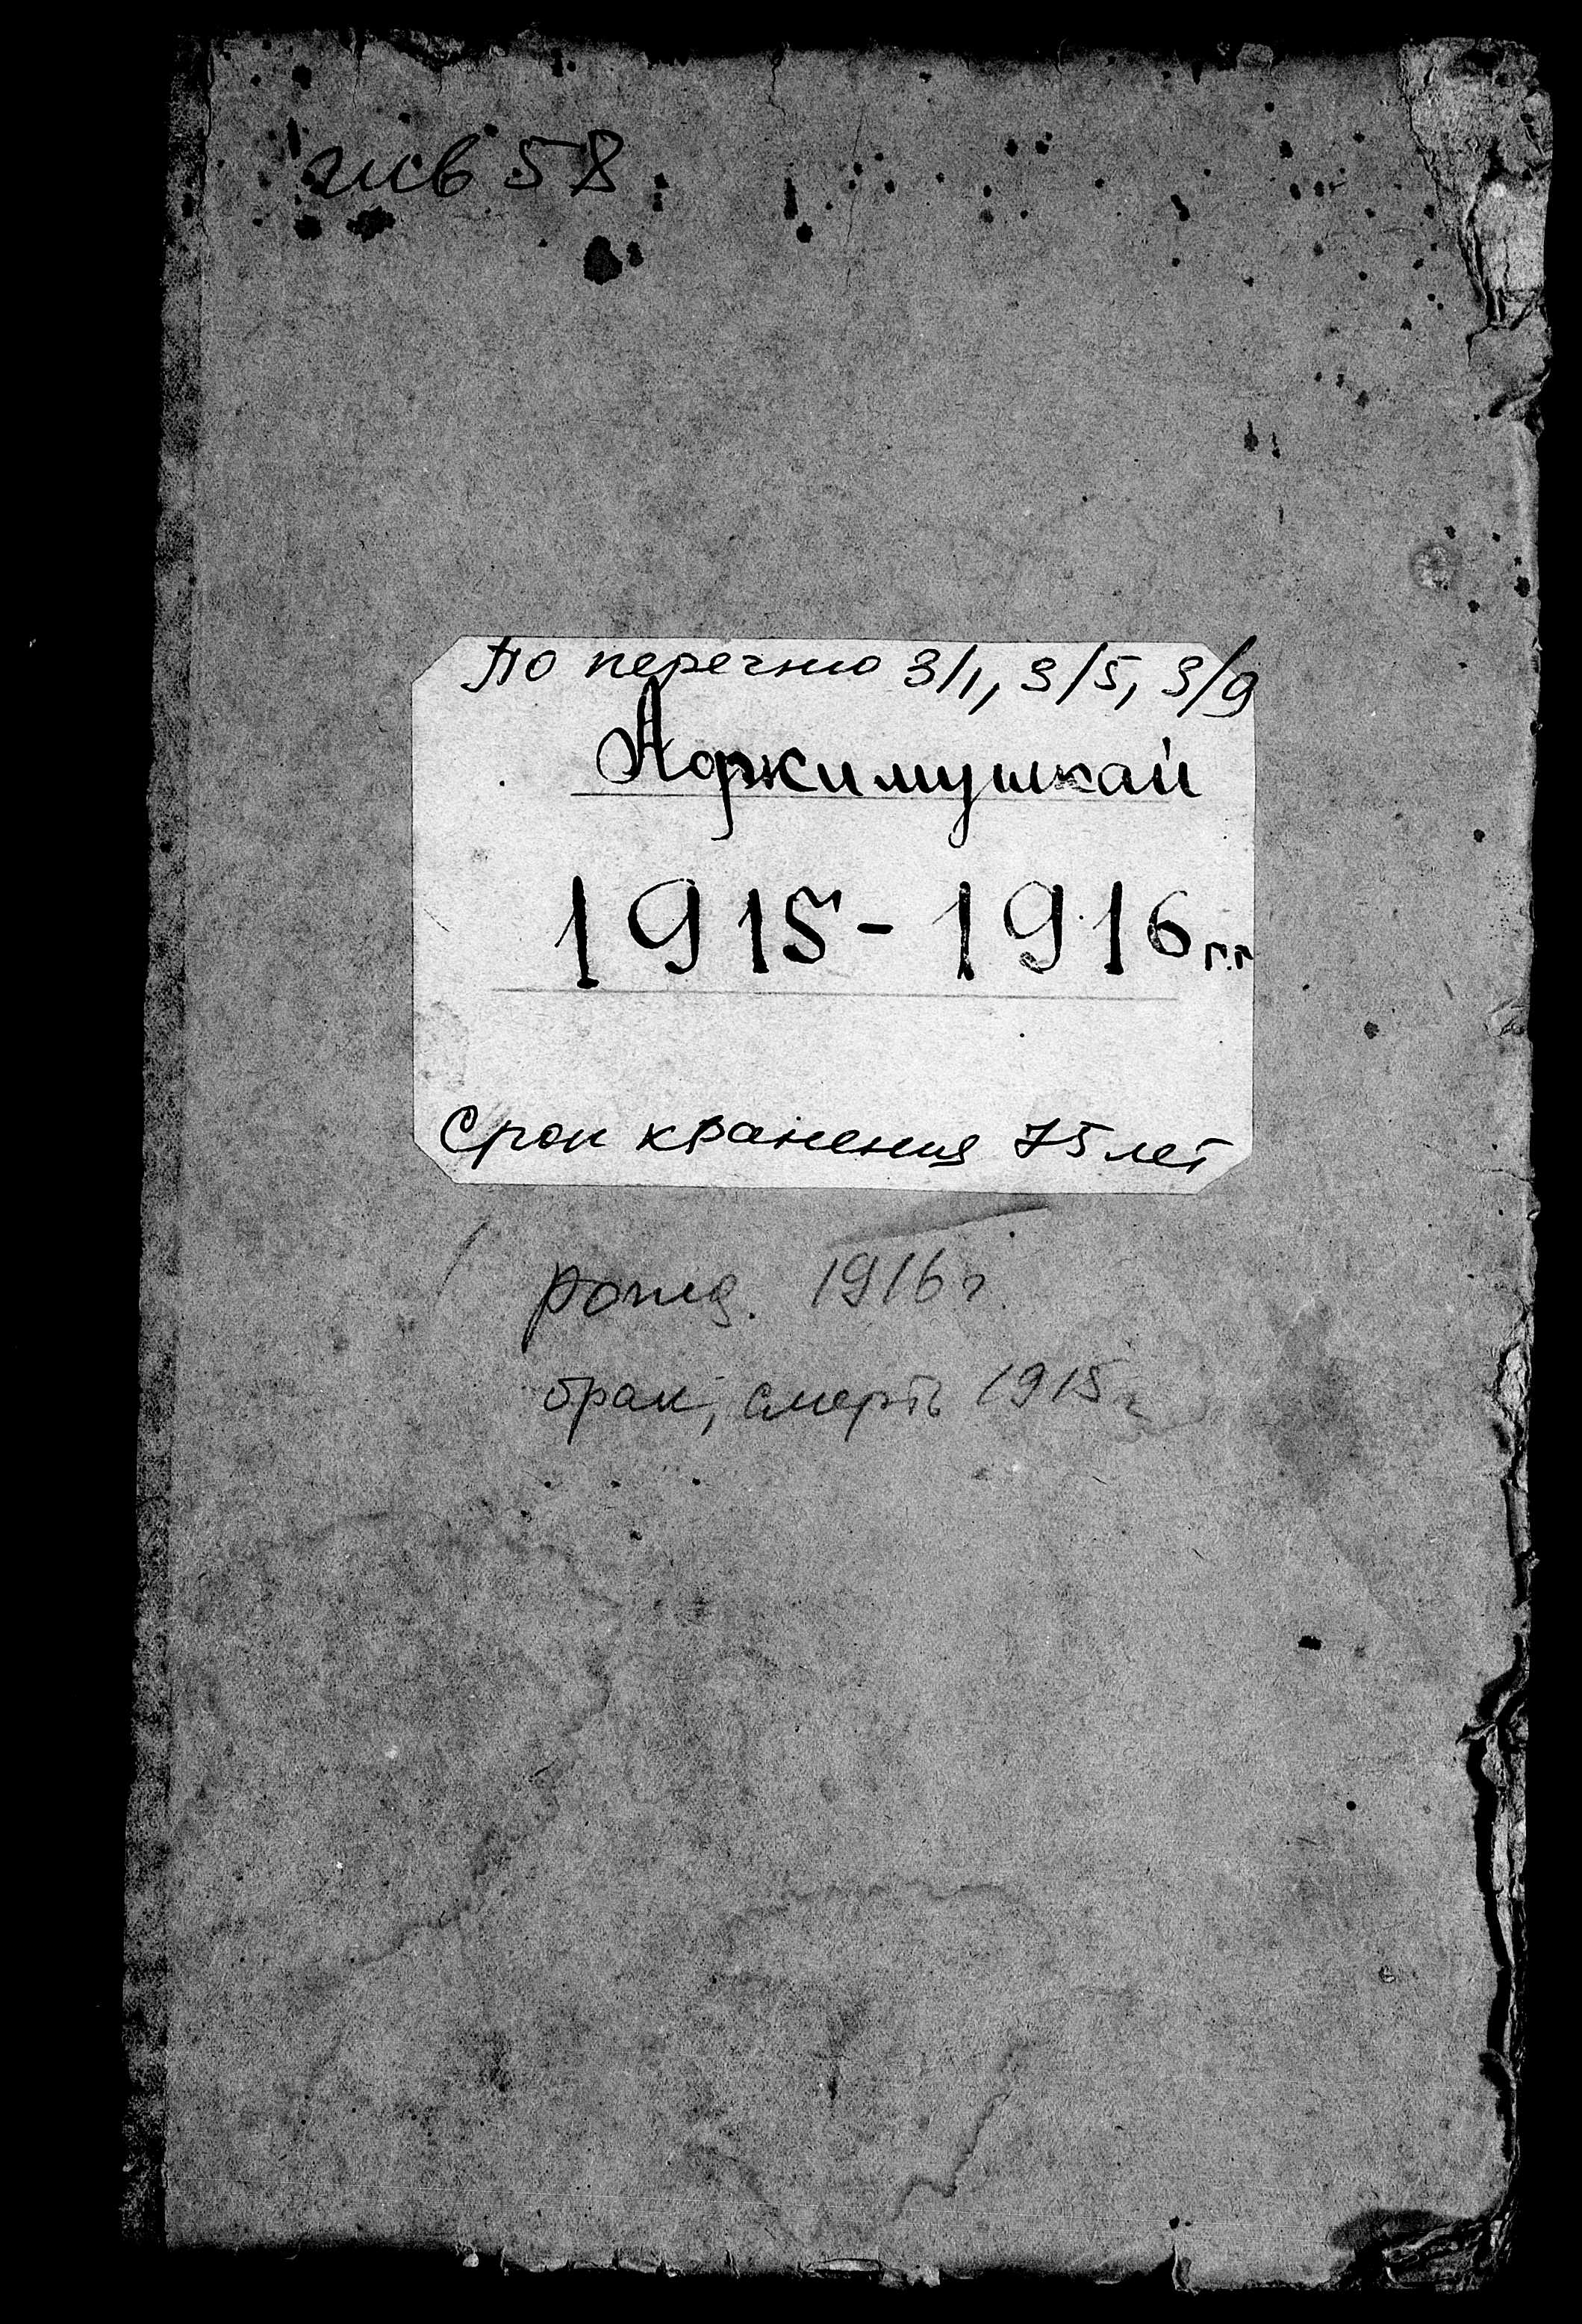 инв 58
По перечню 3/1, 3/5, 3/9
Аджимушкай
1915-1916 г.г
Срок хранения 75 лет
рожд. 1916 г.
брак, смерть 1915 г